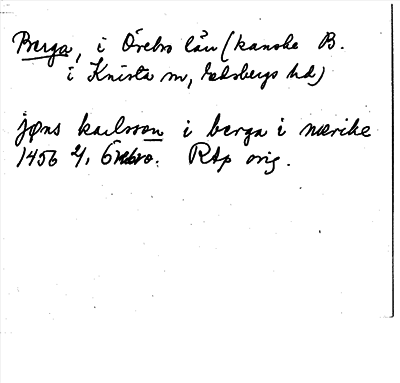 Berga, i Örebro län (kanske B.
i Knista sn, Edsbergs hd)
jøns karlsson i berga i nærike
1456 2/1 Örebro. RAp orig.